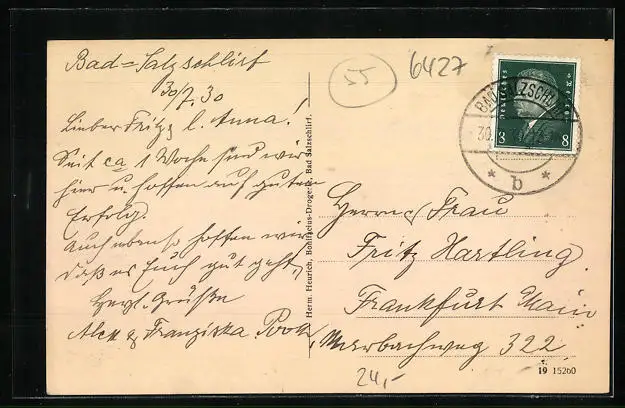 Bad=Salzschlirf
30/7. 30
Lieber Fritz, l. Anna!
Seit ca 1 Woche sind wir
hier u. hoffen auf guten
Erfolg.
Auch ebenso hoffen wir
daß es Euch gut geht.
Herzl. Grüße
Alex & Franziska
55
6427
BAD SALZSCHLIRF
30.
* b *
DEUTSCHES REICH
3 8
Herrn & Frau
Fritz Hartling
Frankfurt Main
322
24,-
Herm. Heurich, Bonifacius-Drogerie, Bad Salzschlirf.
19 15260